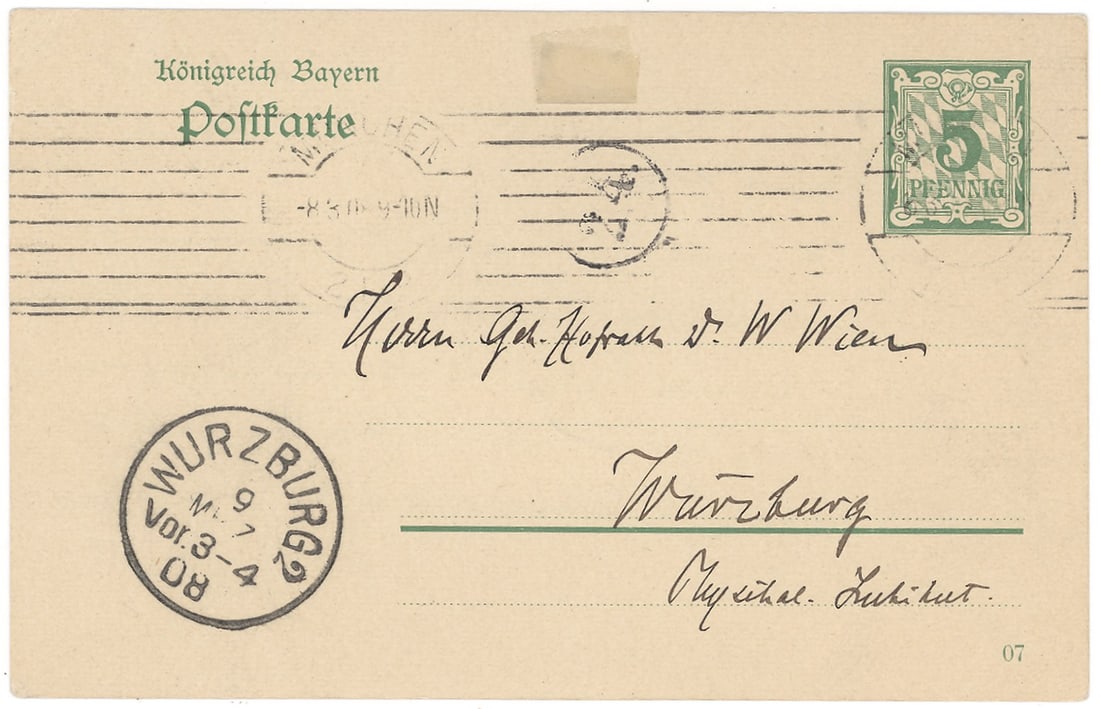 Königreich Bayern
Postkarte
5
PFENNIG
MÜNCHEN
-8.3.08 9-10N
2
Herrn Geh. Hofrath Dr. W Wien
WÜRZBURG 2
9
Vor. 3-4
08
Würzburg
Physikal. Institut.
07